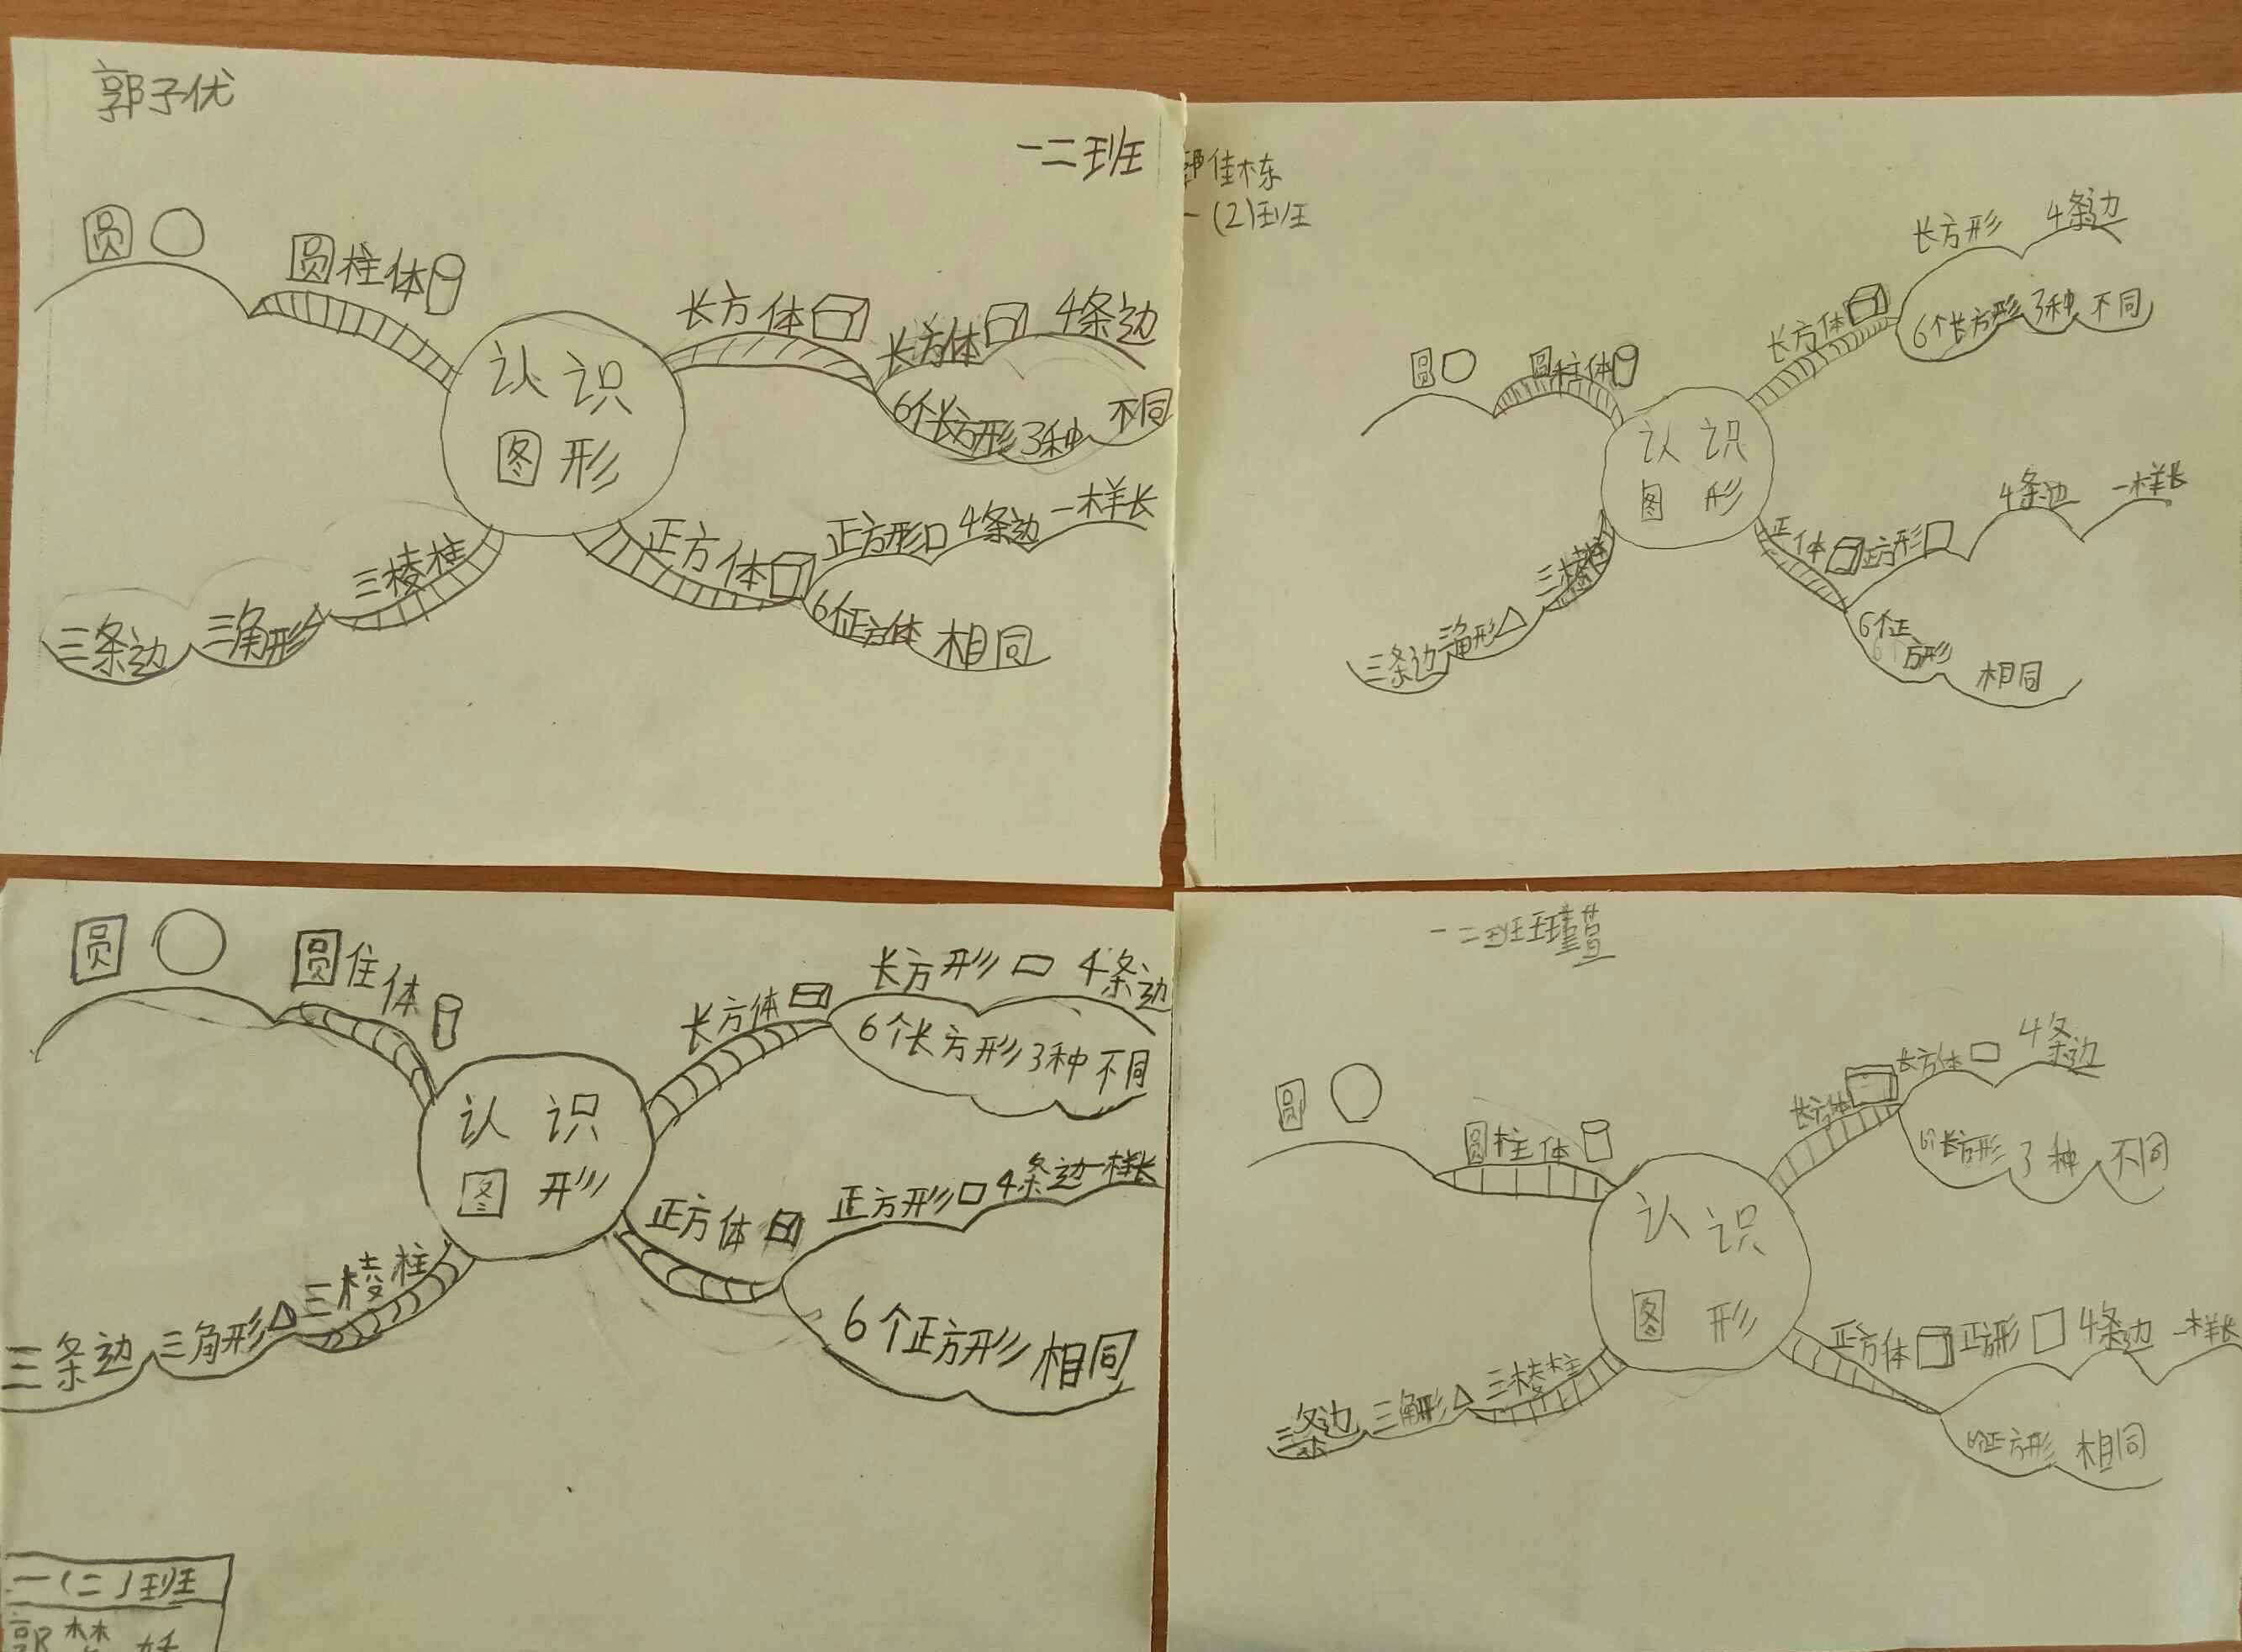 郭子优
一二班
圆
圆柱体
长方体
长方体
4条边
6个长方形
3种
不同
认识
图形
正方体
正方形
4条边
一样长
6个正方体
相同
三棱柱
三角形
三条边
佳栋
一(2)班
圆
圆柱体
长方体
长方形
4条边
6个长方形
3种
不同
认识
图形
正体
正方形
4条边
一样长
6个正
方形
相同
三角形
三条边
圆
圆住体
长方体
长方形
4条边
6个长方形
3种
不同
认识
图形
正方体
正方形
4条边
一样长
6个正方形
相同
三棱柱
三角形
三条边
一(二)班
一二班
圆
圆柱体
长方体
长方体
4条边
6个长方形
3种
不同
认识
图形
正方体
正方形
4条边
一样长
6个正方形
相同
三棱柱
三角形
三条边